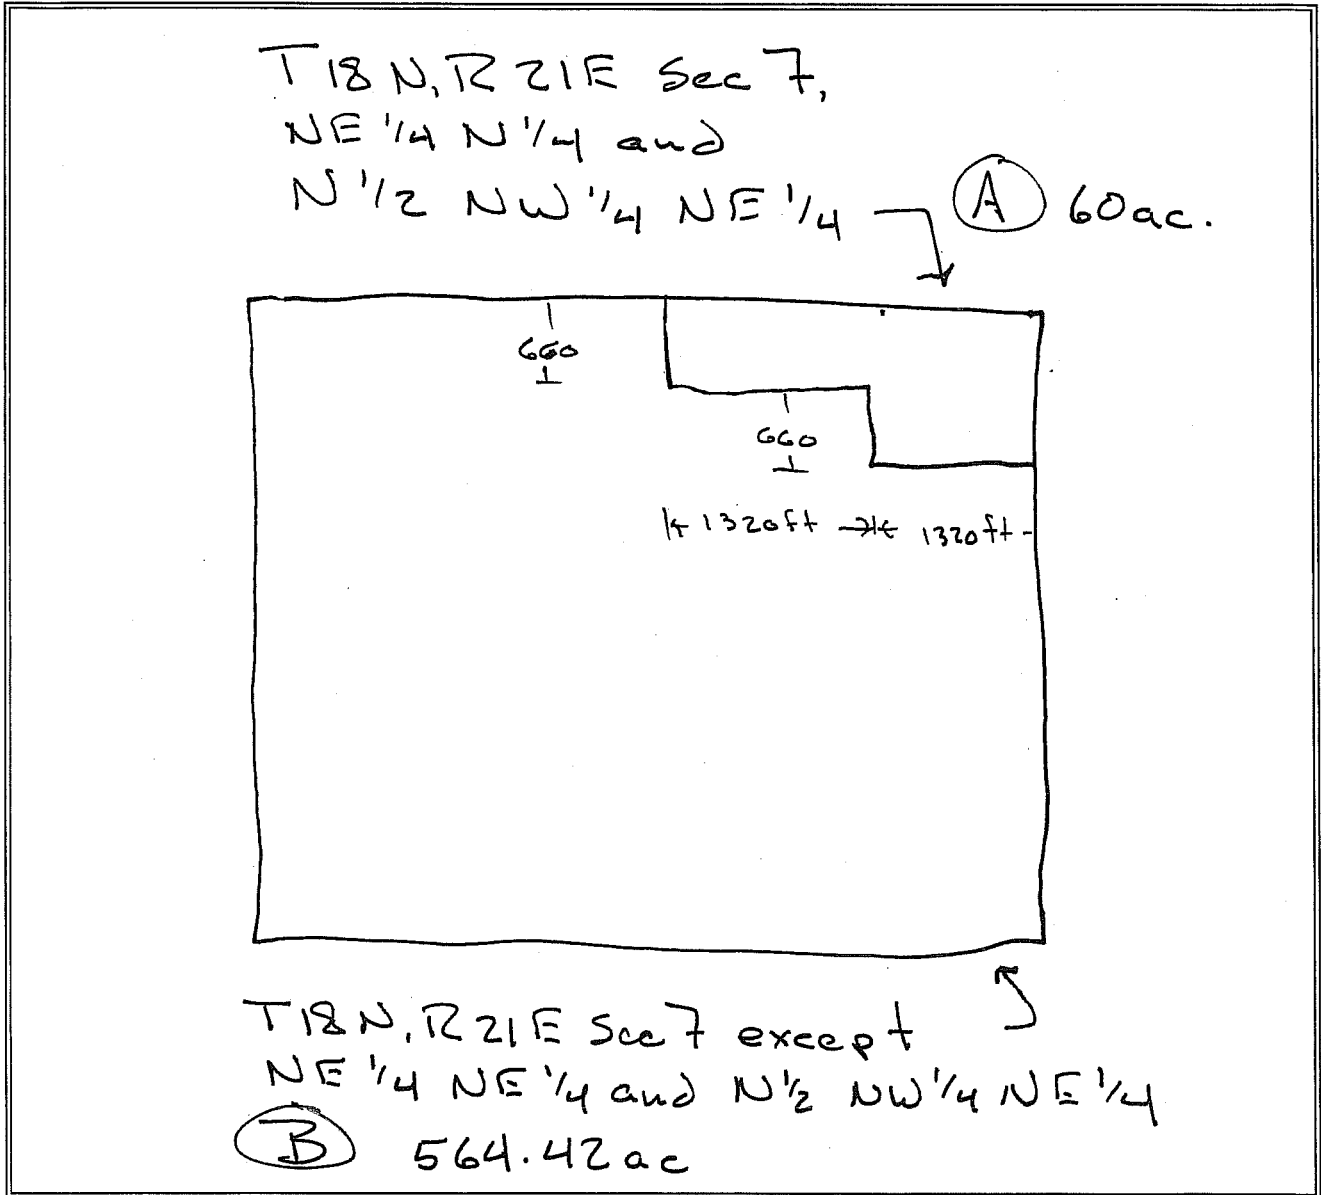 T18N, R21E Sec 7,
NE 1/4 N 1/4 and
N 1/2 NW 1/4 NE 1/4
A 60ac.
660
660
1320ft 1320ft
T18N, R21E Sec 7 except
NE 1/4 NE 1/4 and N 1/2 NW 1/4 NE 1/4
B 564.42ac